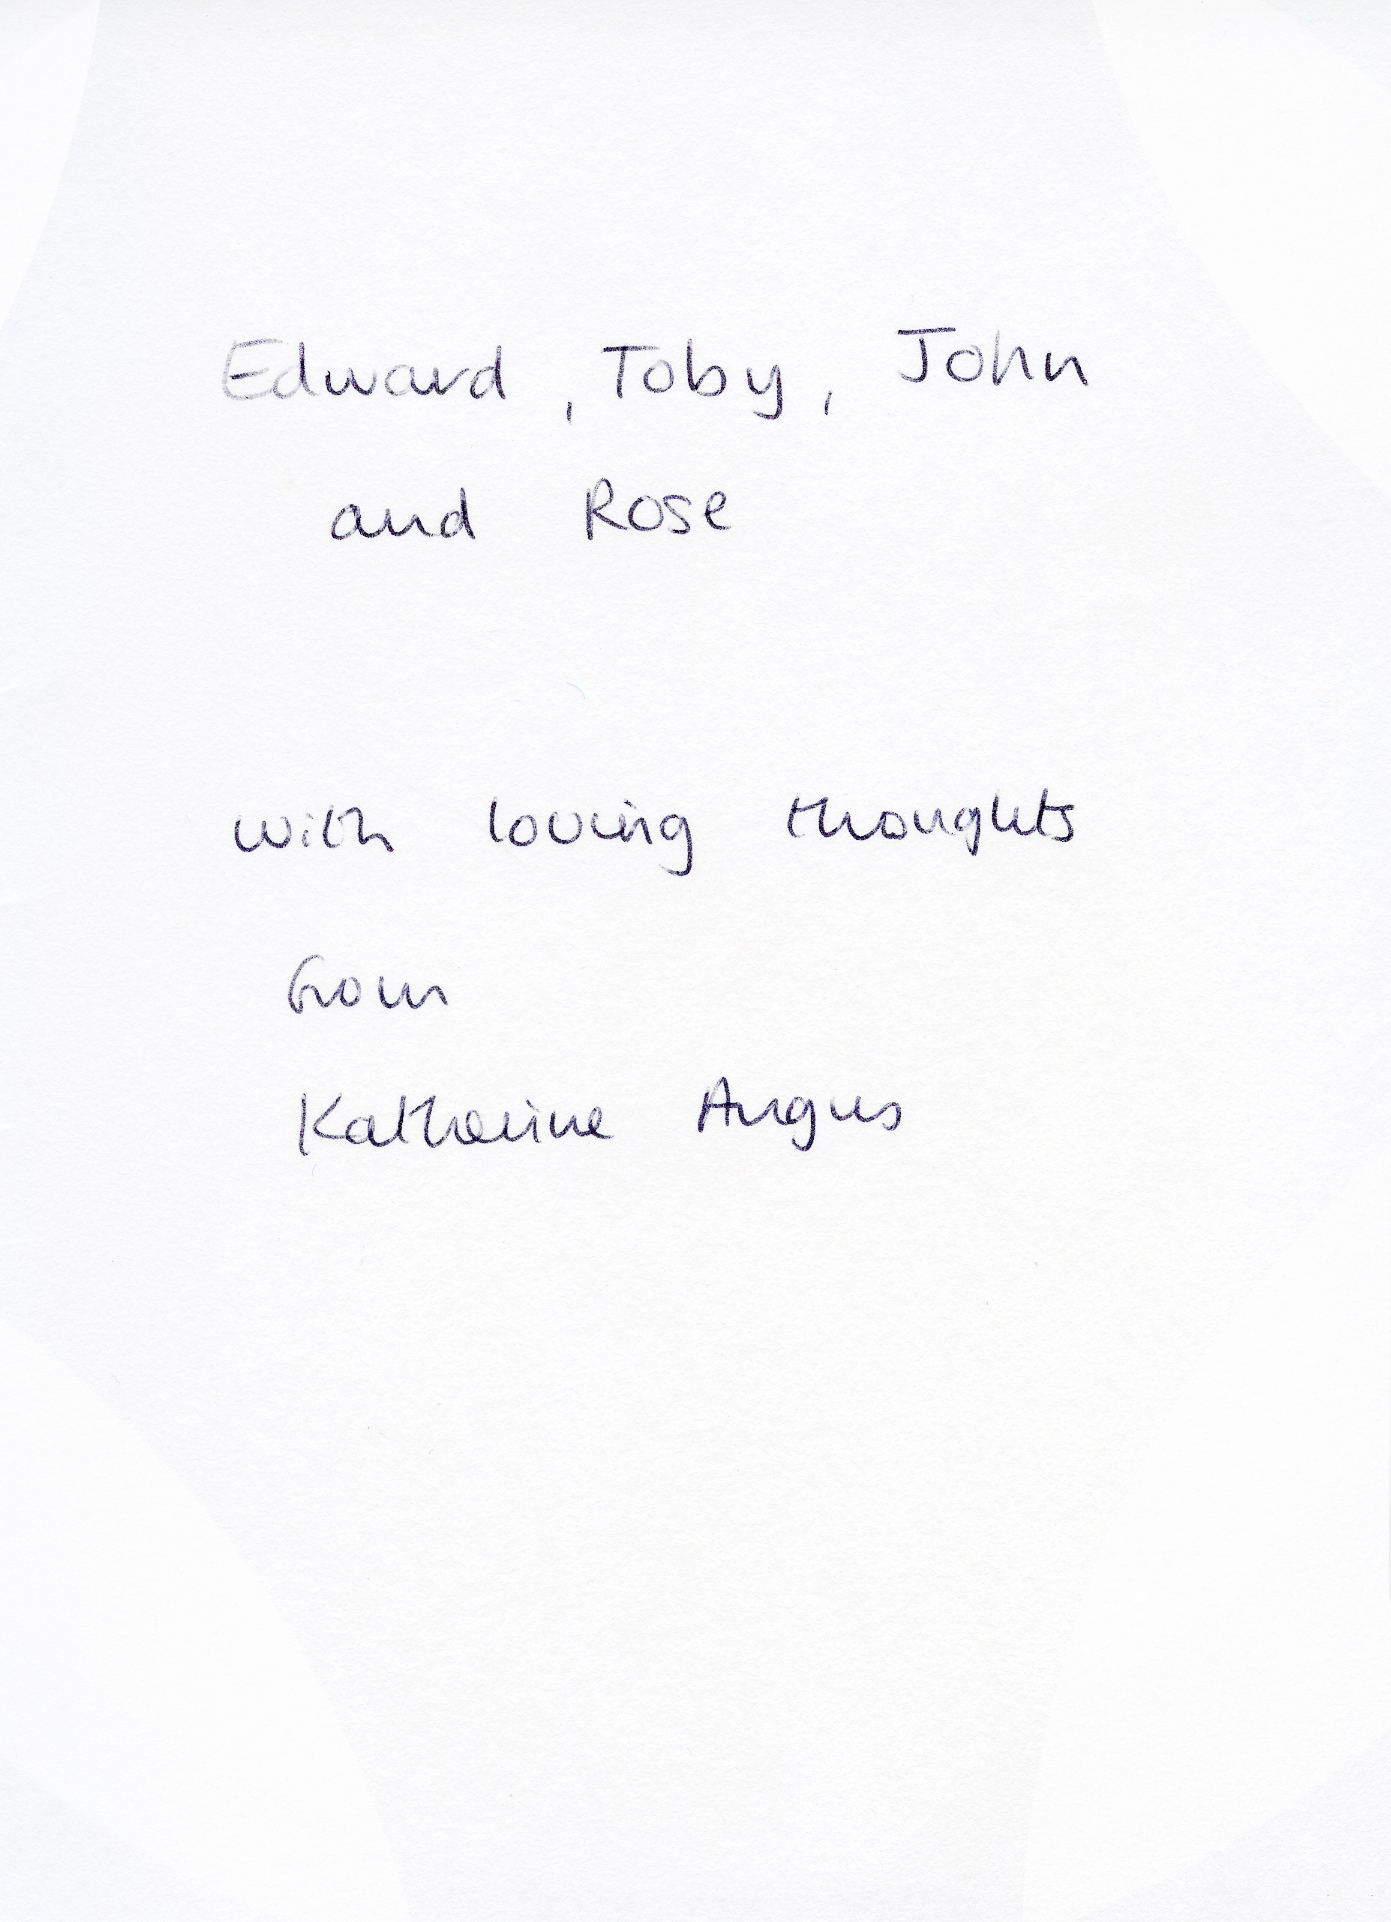 Edward, Toby, John
and Rose
with loving thoughts
from
Katherine Angus